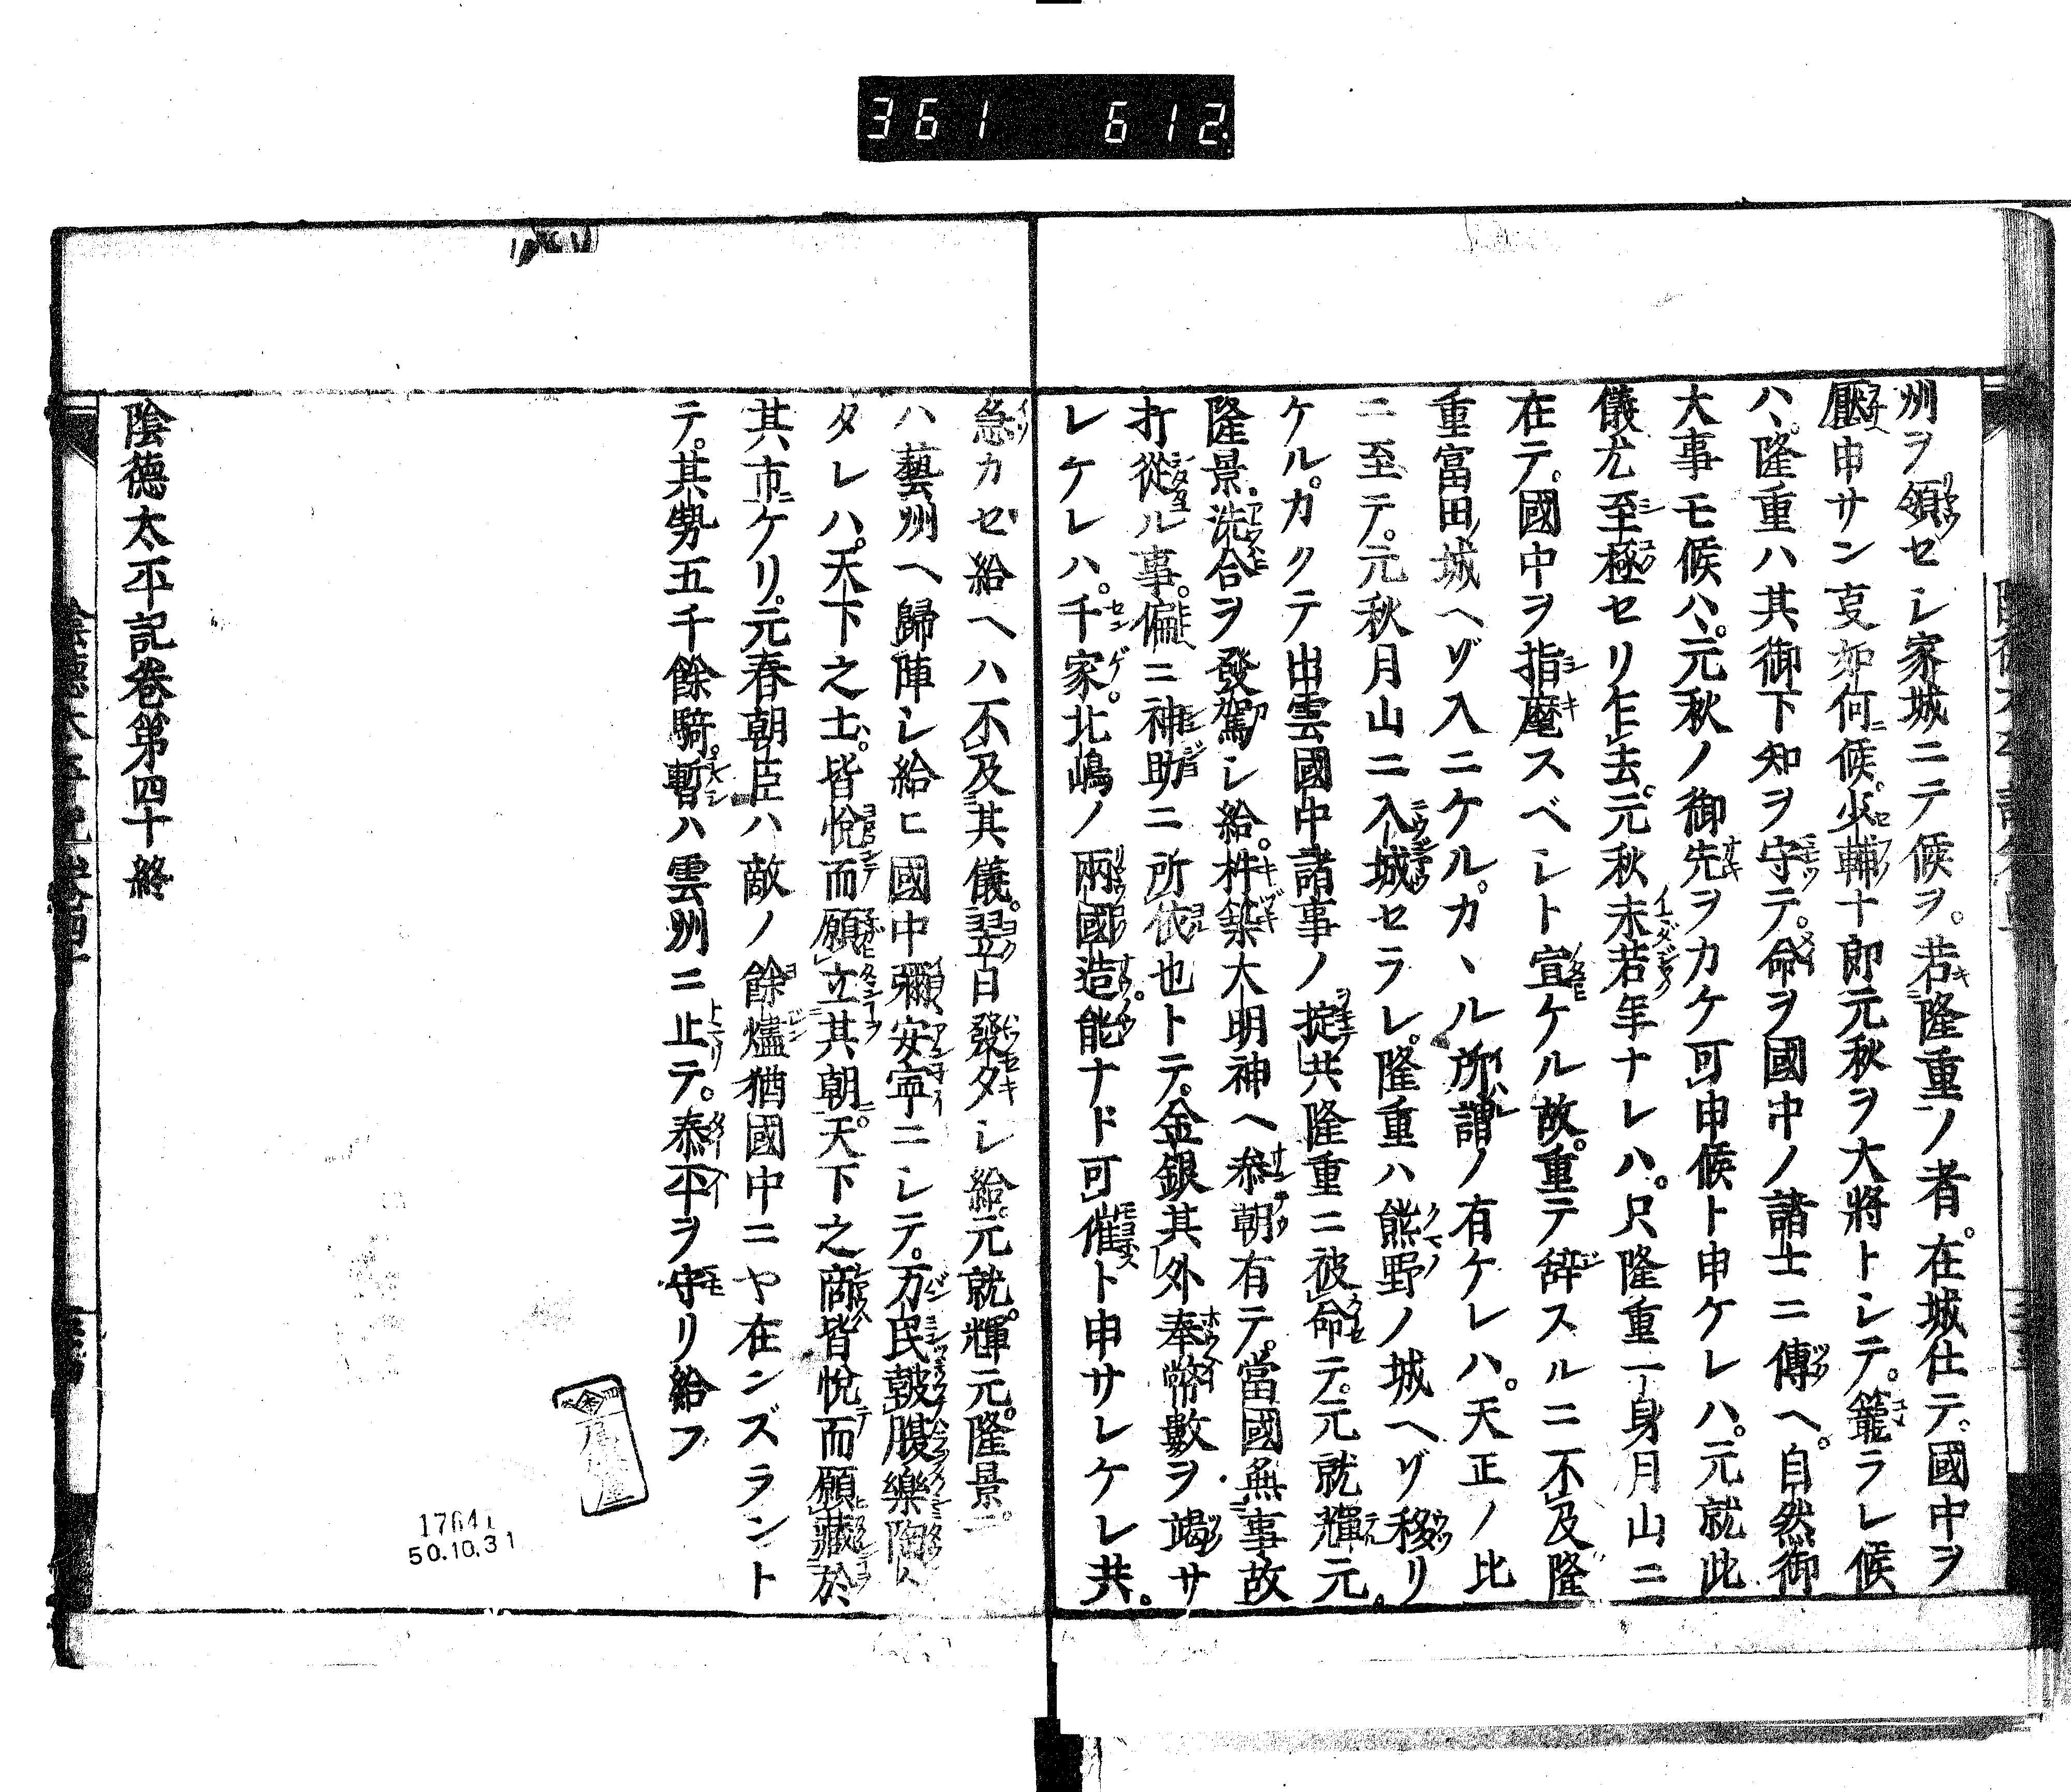 361 612
州ヲ領セシ家城ニテ候ヲ。若隆重ノ者。在城仕テ。國中ヲ
壓申サン叓如何候。少輔十郎元秋ヲ大將トシテ。籠ラレ候
ハヽ。隆重ハ其御下知ヲ守テ。命ヲ國中ノ諸士ニ傳ヘ。自然御
大事モ候ハヽ。元秋ノ御先ヲカケ可申候ト申ケレハ。元就此
儀尤至極セリ乍去。元秋未若年ナレハ。只隆重一身月山ニ
在テ。國中ヲ指麾スベシト宣ケル故。重テ辞スルニ不及隆
重富田ノ城ヘゾ入ニケルカヽル所謂ノ有ケレハ。天正ノ比
ニ至テ。元秋月山ニ入城セラレ。隆重ハ熊野ノ城ヘゾ移リ
ケル。カクテ出雲國中諸事ノ掟共隆重ニ被命テ。元就輝元。
隆景洗合ヲ發駕シ給。杵築大明神ヘ參朝有テ。當國無事故
打從ル事。偏ニ神助ニ所依也トテ。金銀其外奉幣數ヲ竭サ
レケレハ。千家。北嶋ノ兩國造。能ナド可催ト申サレケレ共。
急カセ給ヘハ不及其儀。翌日發タシ給。元就。輝元。隆景ニ
ハ藝州ヘ歸陣シ給ヒ國中彌安寧ニシテ。万民皷腹樂陶々
タレハ。天下之士。皆悅而願立其朝。天下之商皆悅而願藏於
其市ケリ。元春朝臣ハ敵ノ餘燼猶國中ニヤ在ンズラント
テ。其勢五千餘騎。暫ハ雲州ニ止テ。泰平ヲ守リ給フ
陰德太平記卷第四十終
17641
50.10.31